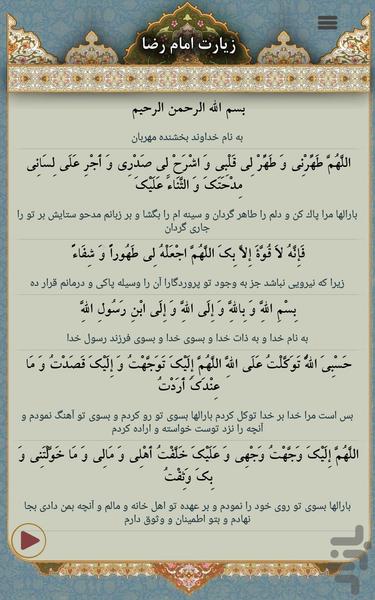 زیارت امام رضا
بسم الله الرحمن الرحیم
به نام خداوند بخشنده مهربان
اللَّهُمَّ طَهِّرْنِی وَ طَهِّرْ لِی قَلْبِی وَ اشْرَحْ لِی صَدْرِی وَ أَجْرِ عَلَى لِسَانِی
مِدْحَتَکَ وَ الثَّنَاءَ عَلَیْکَ
بارالها مرا پاك کن و دلم را طاهر گردان و سینه ام را بگشا و بر زبانم مدحو ستایش بر تو را
جاری گردان
فَإِنَّهُ لاَ قُوَّةَ إِلاَّ بِکَ اللَّهُمَّ اجْعَلْهُ لِی طَهُوراً وَ شِفَاءً
زیرا که نیرویی نباشد جز به وجود تو پروردگارا آن را وسیله پاکی و درمانم قرار ده
بِسْمِ اللَّهِ وَ بِاللَّهِ وَ إِلَى اللَّهِ وَ إِلَى ابْنِ رَسُولِ اللَّهِ
به نام خدا و به ذات خدا و بسوی خدا و بسوی فرزند رسول خدا
حَسْبِیَ اللَّهُ تَوَکَّلْتُ عَلَى اللَّهِ اللَّهُمَّ إِلَیْکَ تَوَجَّهْتُ وَ إِلَیْکَ قَصَدْتُ وَ مَا
عِنْدَکَ أَرَدْتُ
بس است مرا خدا بر خدا توکل کردم بارالها بسوی تو رو کردم و بسوی تو آهنگ نمودم و
آنچه را نزد توست خواسته و اراده کردم
اللَّهُمَّ إِلَیْکَ وَجَّهْتُ وَجْهِی وَ عَلَیْکَ خَلَّفْتُ أَهْلِی وَ مَالِی وَ مَا خَوَّلْتَنِی وَ
بِکَ وَثِقْتُ
بارالها بسوی تو روی خود را نمودم و بر عهده تو اهل خانه و مالم و آنچه بمن دادی بجا
نهادم و بتو اطمینان و وثوق دارم
بازار